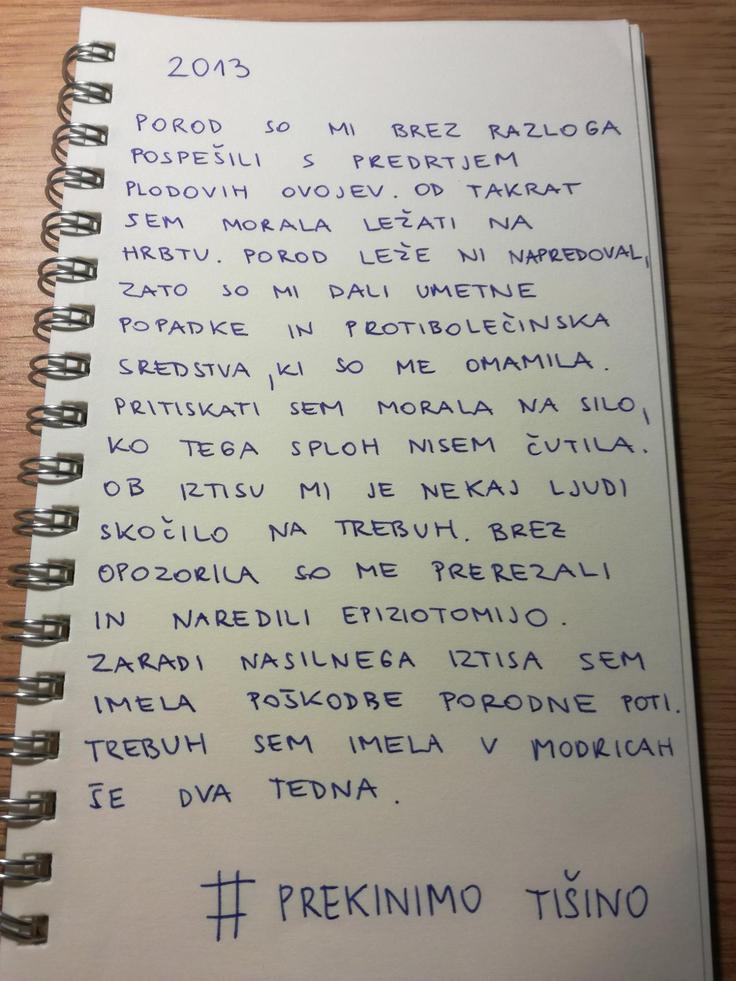 2013
POROD SO MI BREZ RAZLOGA
POSPEŠILI S PREDRTJEM
PLODOVIH OVOJEV. OD TAKRAT
SEM MORALA LEŽATI NA
HRBTU. POROD LEŽE NI NAPREDOVAL,
ZATO SO MI DALI UMETNE
POPADKE IN PROTIBOLEČINSKA
SREDSTVA, KI SO ME OMAMILA.
PRITISKATI SEM MORALA NA SILO,
KO TEGA SPLOH NISEM ČUTILA.
OB IZTISU MI JE NEKAJ LJUDI
SKOČILO NA TREBUH. BREZ
OPOZORILA SO ME PREREZALI
IN NAREDILI EPIZIOTOMIJO.
ZARADI NASILNEGA IZTISA SEM
IMELA POŠKODBE PORODNE POTI.
TREBUH SEM IMELA V MODRICAH
ŠE DVA TEDNA.
# PREKINIMO TIŠINO